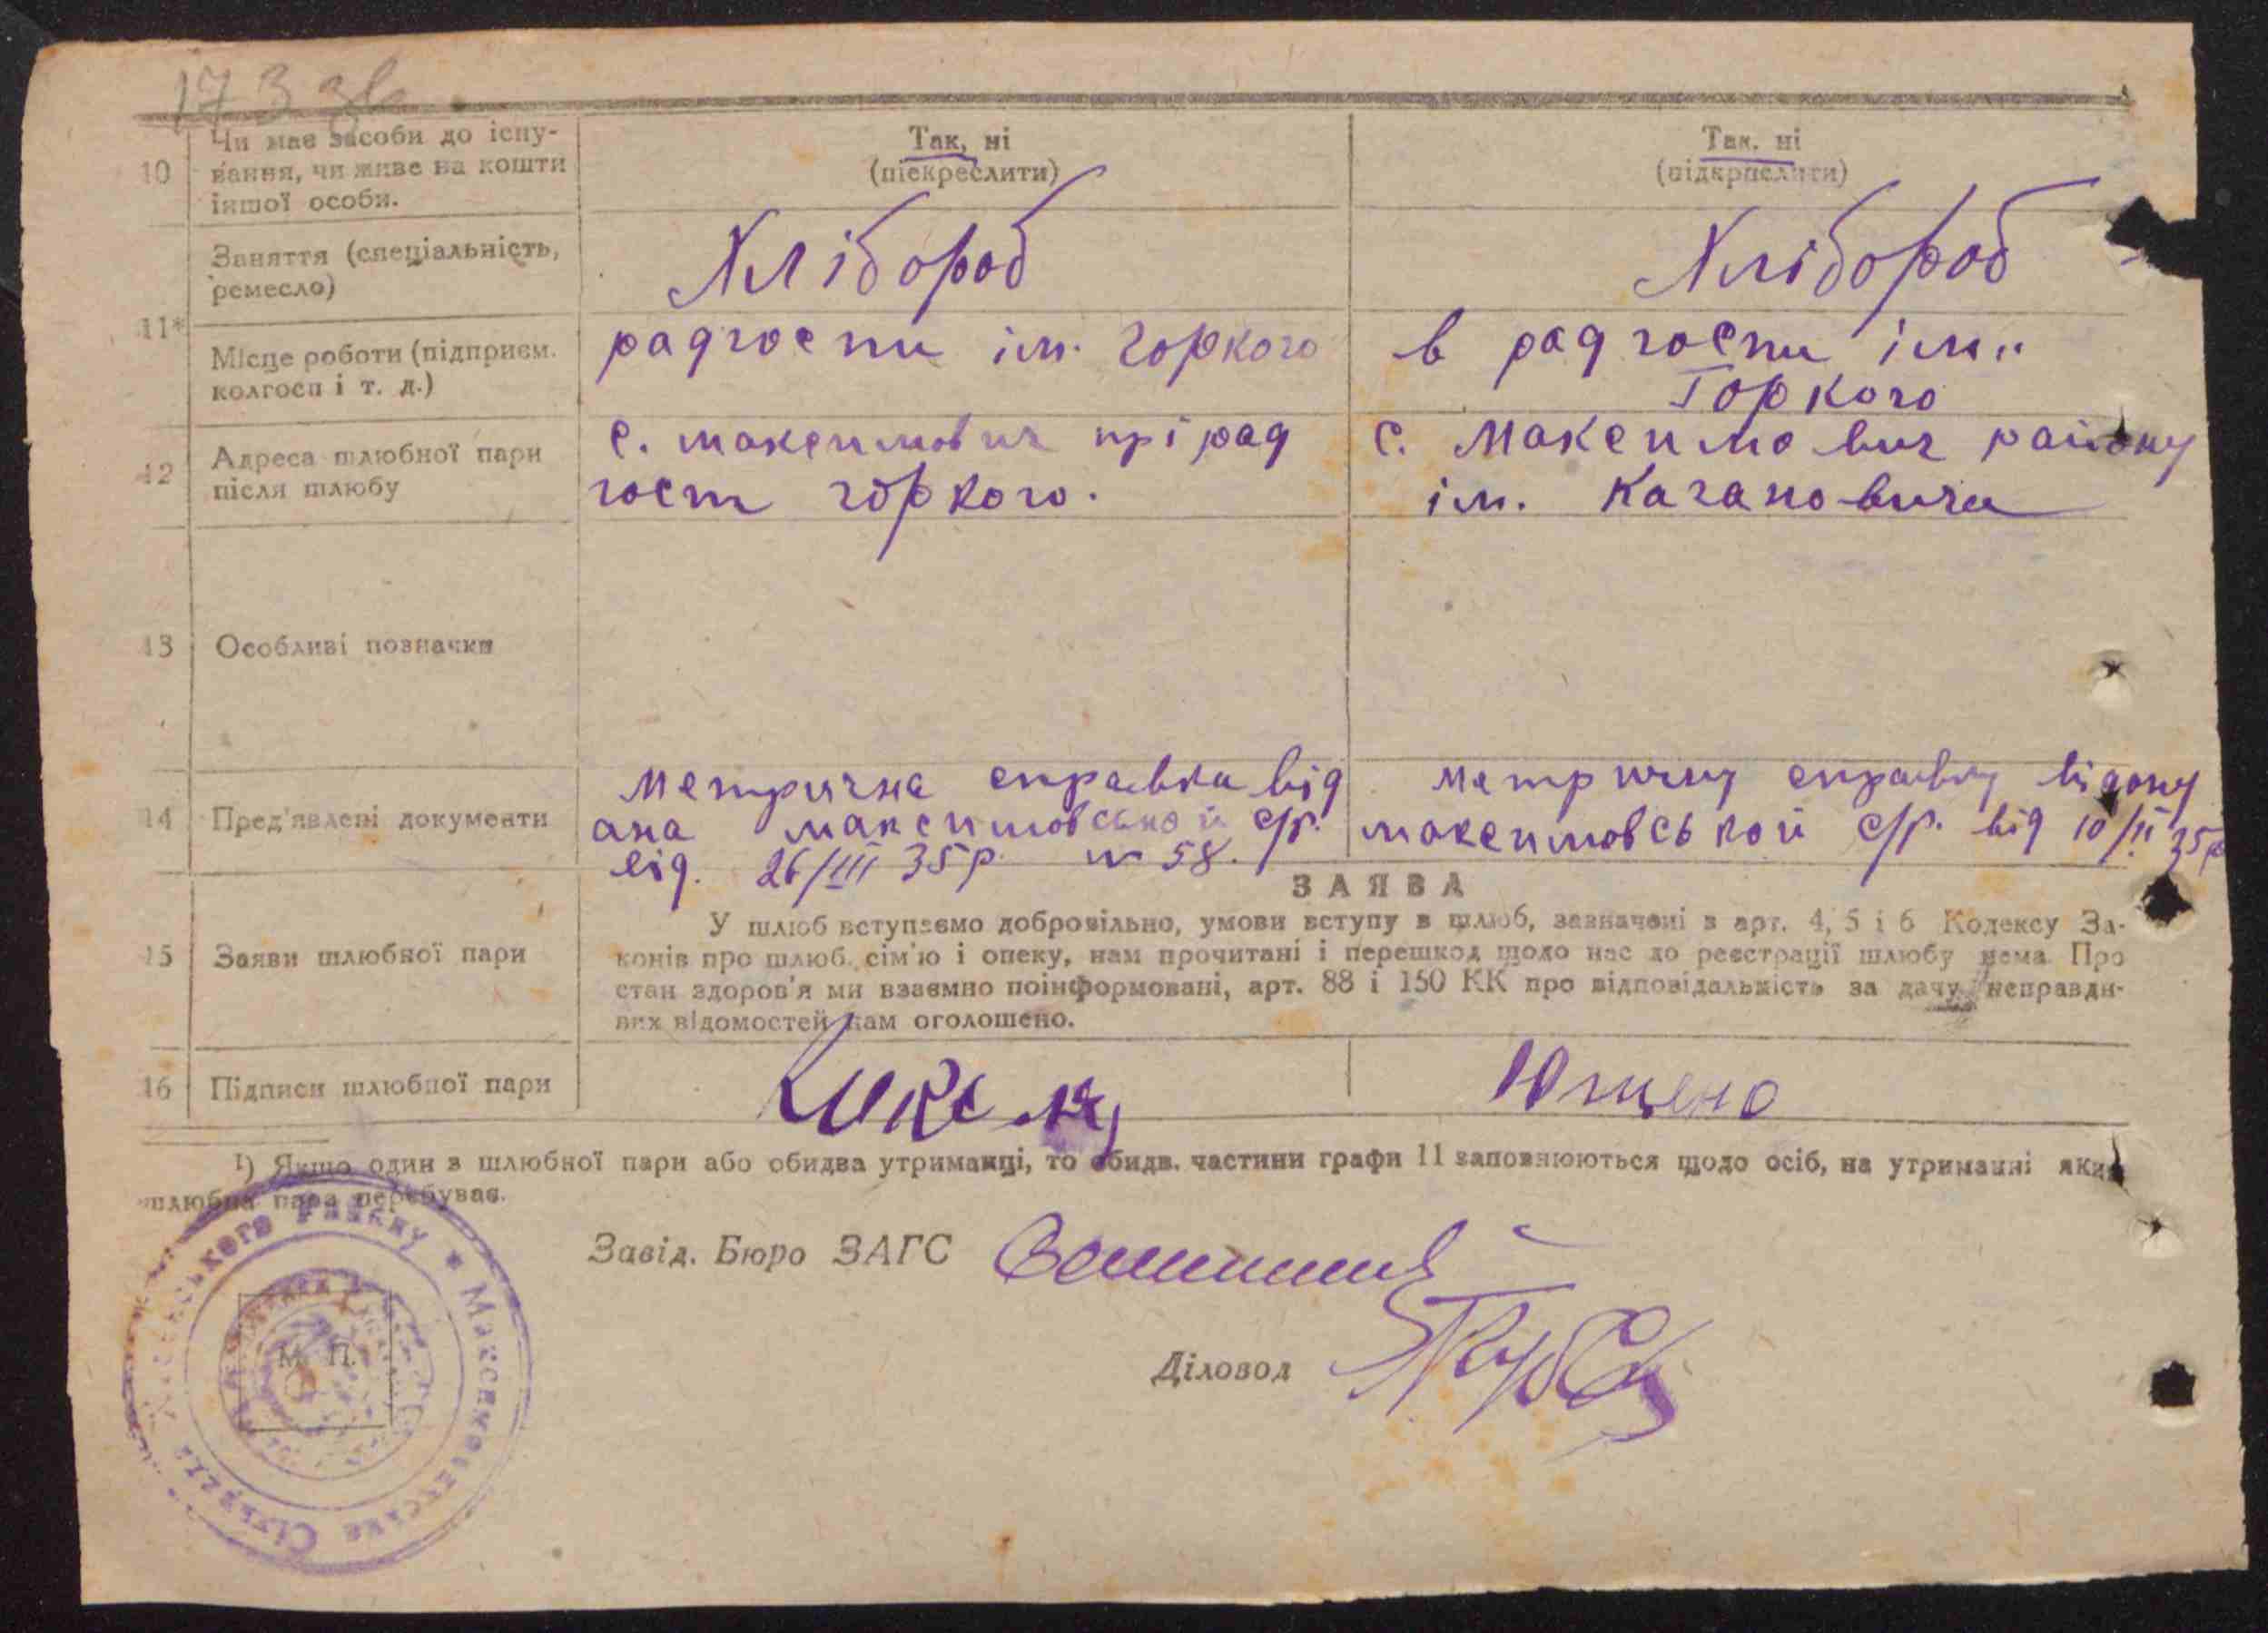 173 зв.
10
Чи має засоби до існу-
вання, чи живе на кошти
іншої особи.
Так, ні
(піекреслити)
Так, ні
(підкрпслити)
11*
Заняття (спеціальність,
ремесло)
Хлібороб
Хлібороб
Місце роботи (підприєм.
колгосп і т. д.)
радгоспи ім. Горкого
в радгоспи ім.
Горкого
12
Адреса шлюбної пари
після шлюбу
с. максимович прі рад
госп горкого.
с. Максимович району
ім. Кагановича
13
Особливі позначки
14
Пред'явлені документи
метрична справка від
ана максимовської с/р.
від. 26/III 35р. № 58.
метричну справку відону
максимовської с/р. від 10/II 35р
15
Заяви шлюбної пари
ЗАЯВА
У шлюб вступаємо добровільно, умови вступу в шлюб, зазначені в арт. 4, 5 і 6 Кодексу За-
конів про шлюб, сім'ю і опеку, нам прочитані і перешкод щодо нас до реєстрації шлюбу нема. Про
стан здоров'я ми взаємно поінформовані, арт. 88 і 150 КК про відповідальність за дачу неправди-
вих відомостей нам оголошено.
16
Підписи шлюбної пари
Ющено
¹) Якщо один з шлюбної пари або обидва утриманці, то обидв. частини графи 11 заповнюються щодо осіб, на утриманні яких
шлюбна пара перебуває.
Завід. Бюро ЗАГС
Діловод
М. П.
Району * Максимовицька Сільрада